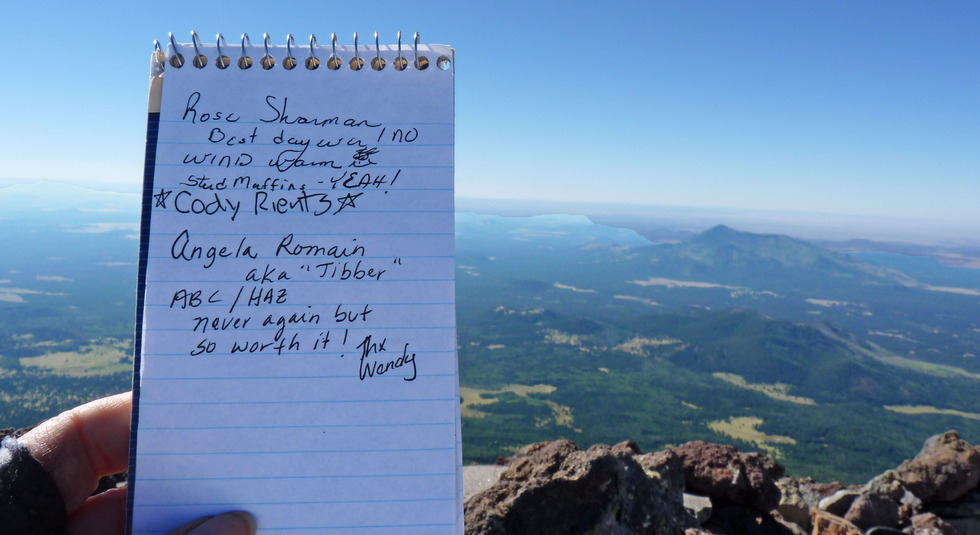 Rose Sharman
Best day ever! no
WIND Warm
Stud Muffins - YEAH!
☆Cody Rientz☆
Angela Romain
aka "Jibber"
ABC/HAZ
never again but
so worth it! Thx
Wendy